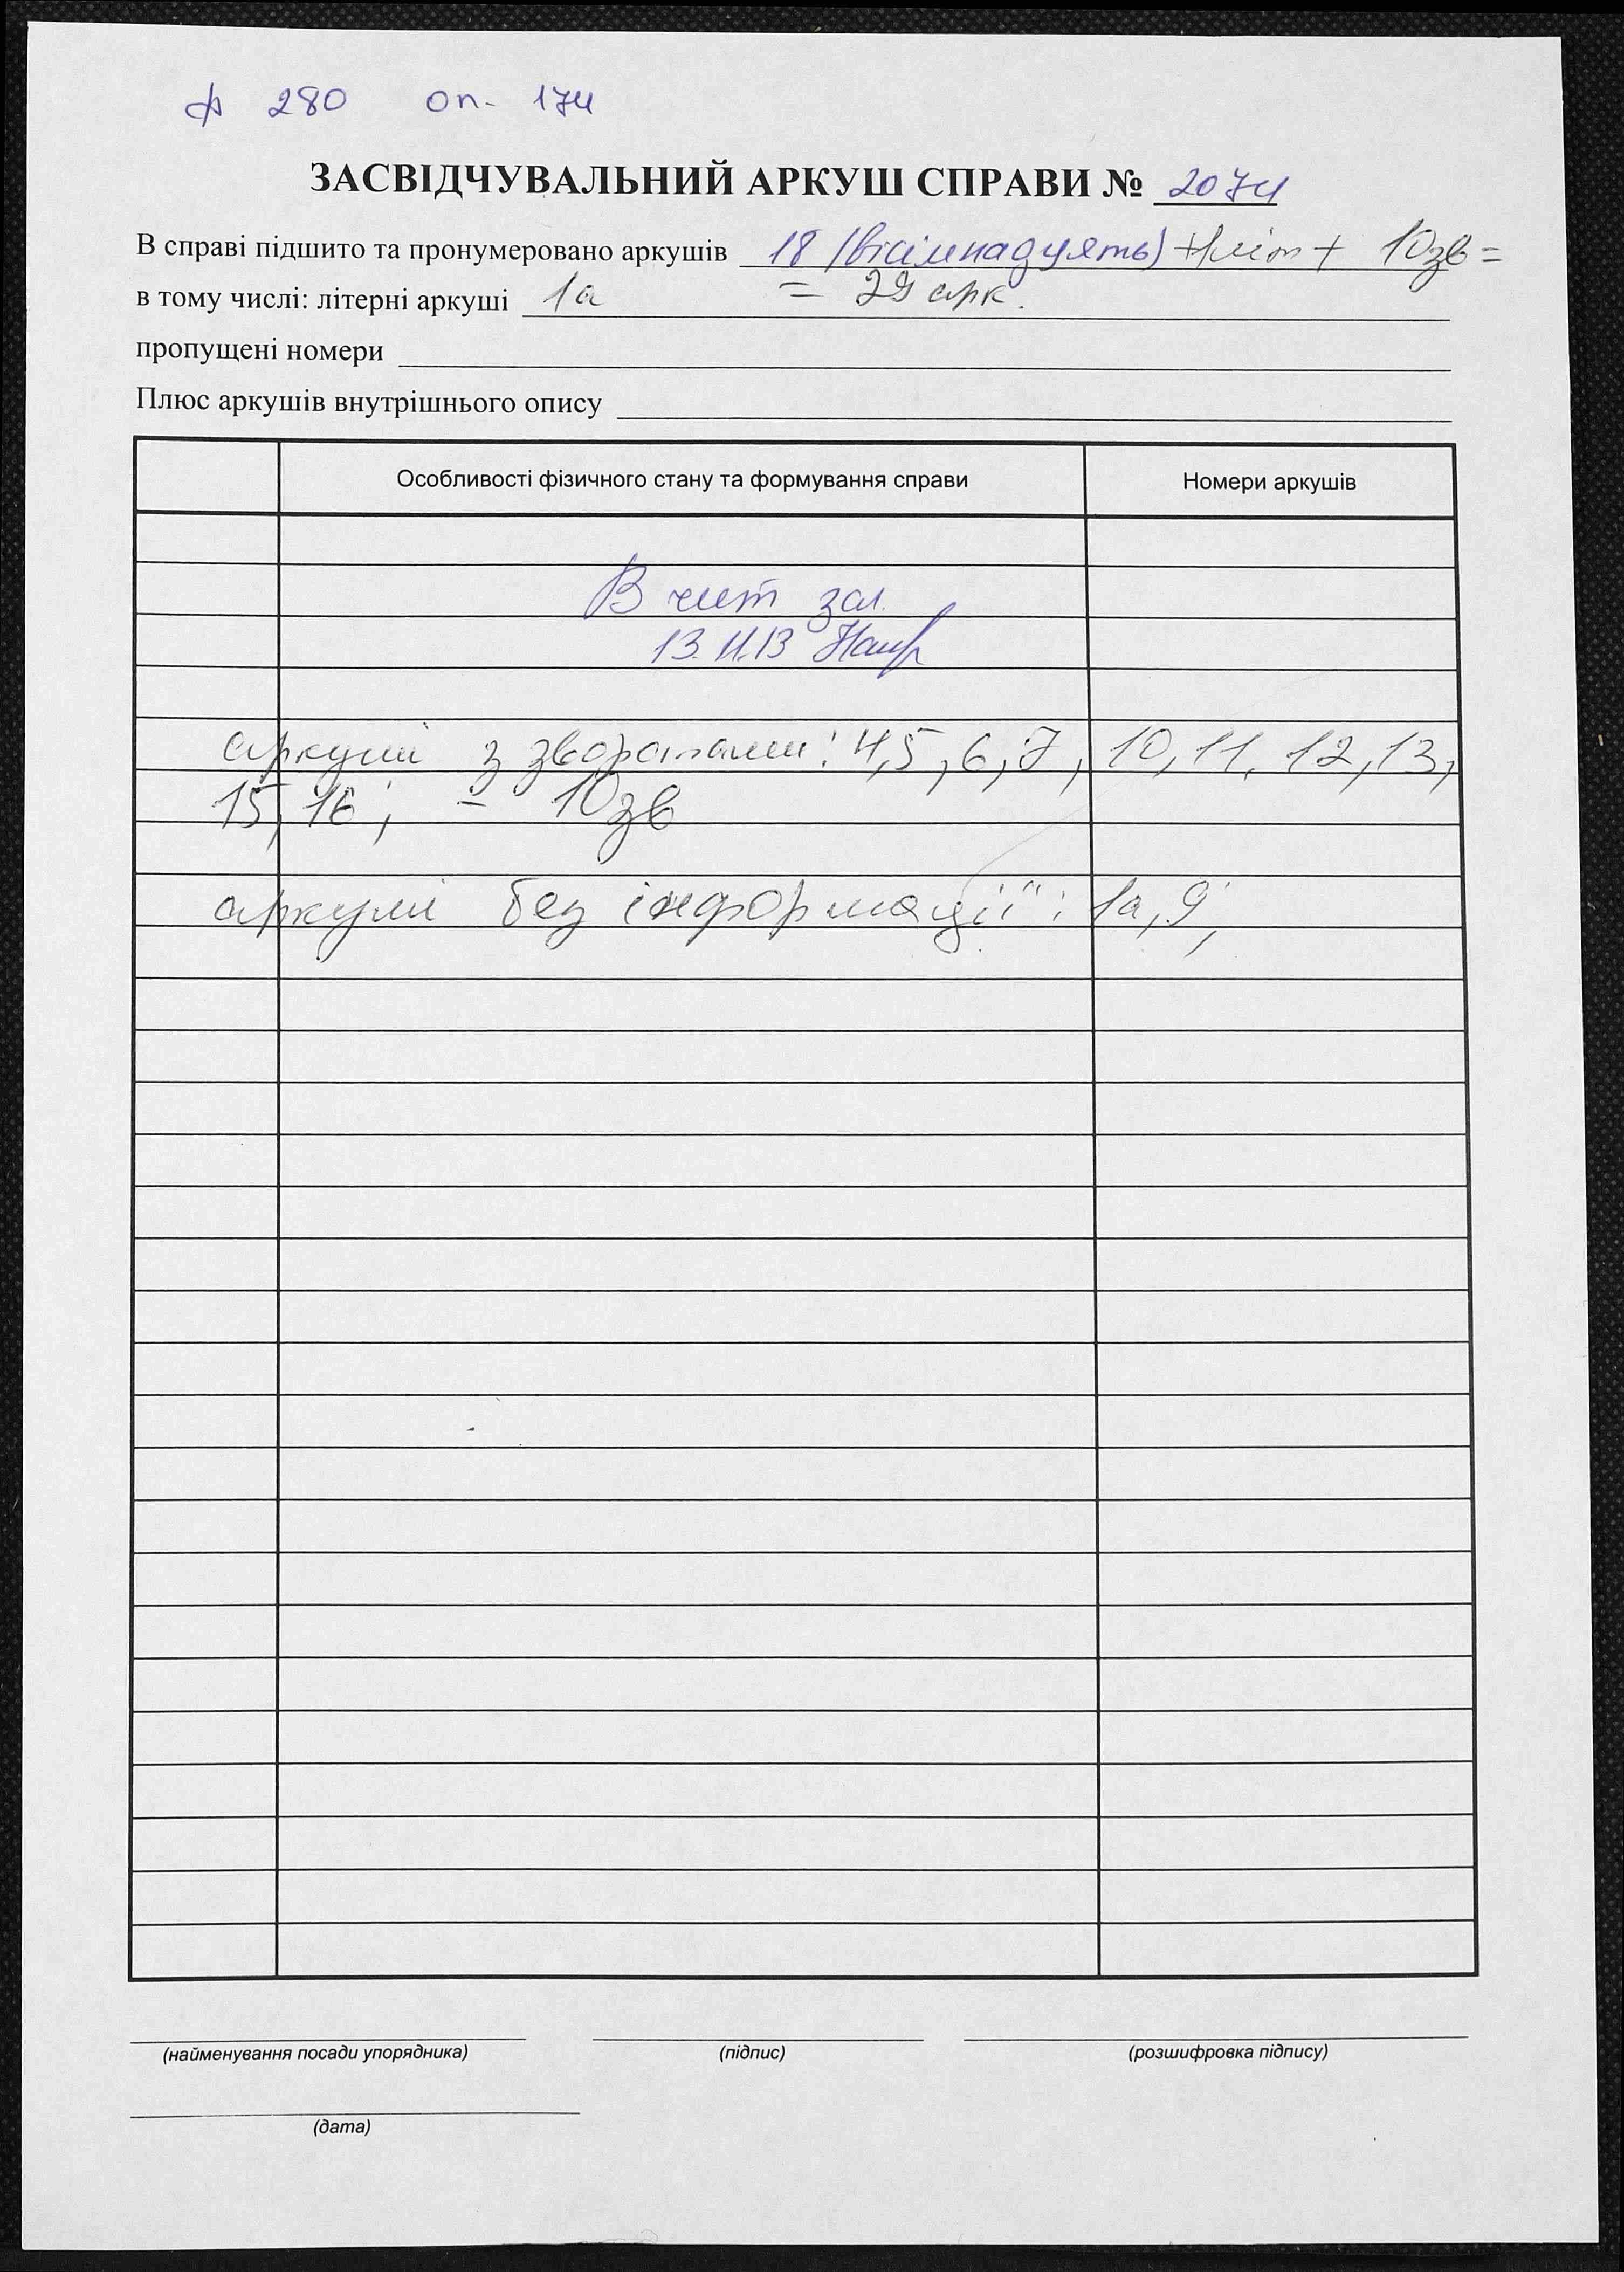 ф 280 оп. 174
ЗАСВІДЧУВАЛЬНИЙ АРКУШ СПРАВИ № 2074
В справі підшито та пронумеровано аркушів 18 (вісімнадцять) + 1 літ + 10зв =
в тому числі: літерні аркуші 1а = 29 арк.
пропущені номери
Плюс аркушів внутрішнього опису
Особливості фізичного стану та формування справи Номери аркушів
В чит зал.
13.11.13
аркуші з зворотами: 4,5,6,7, 10,11, 12,13,
15, 16; = 10зв
аркуші без інформації: 1а, 9;
(найменування посади упорядника) (підпис) (розшифровка підпису)
(дата)